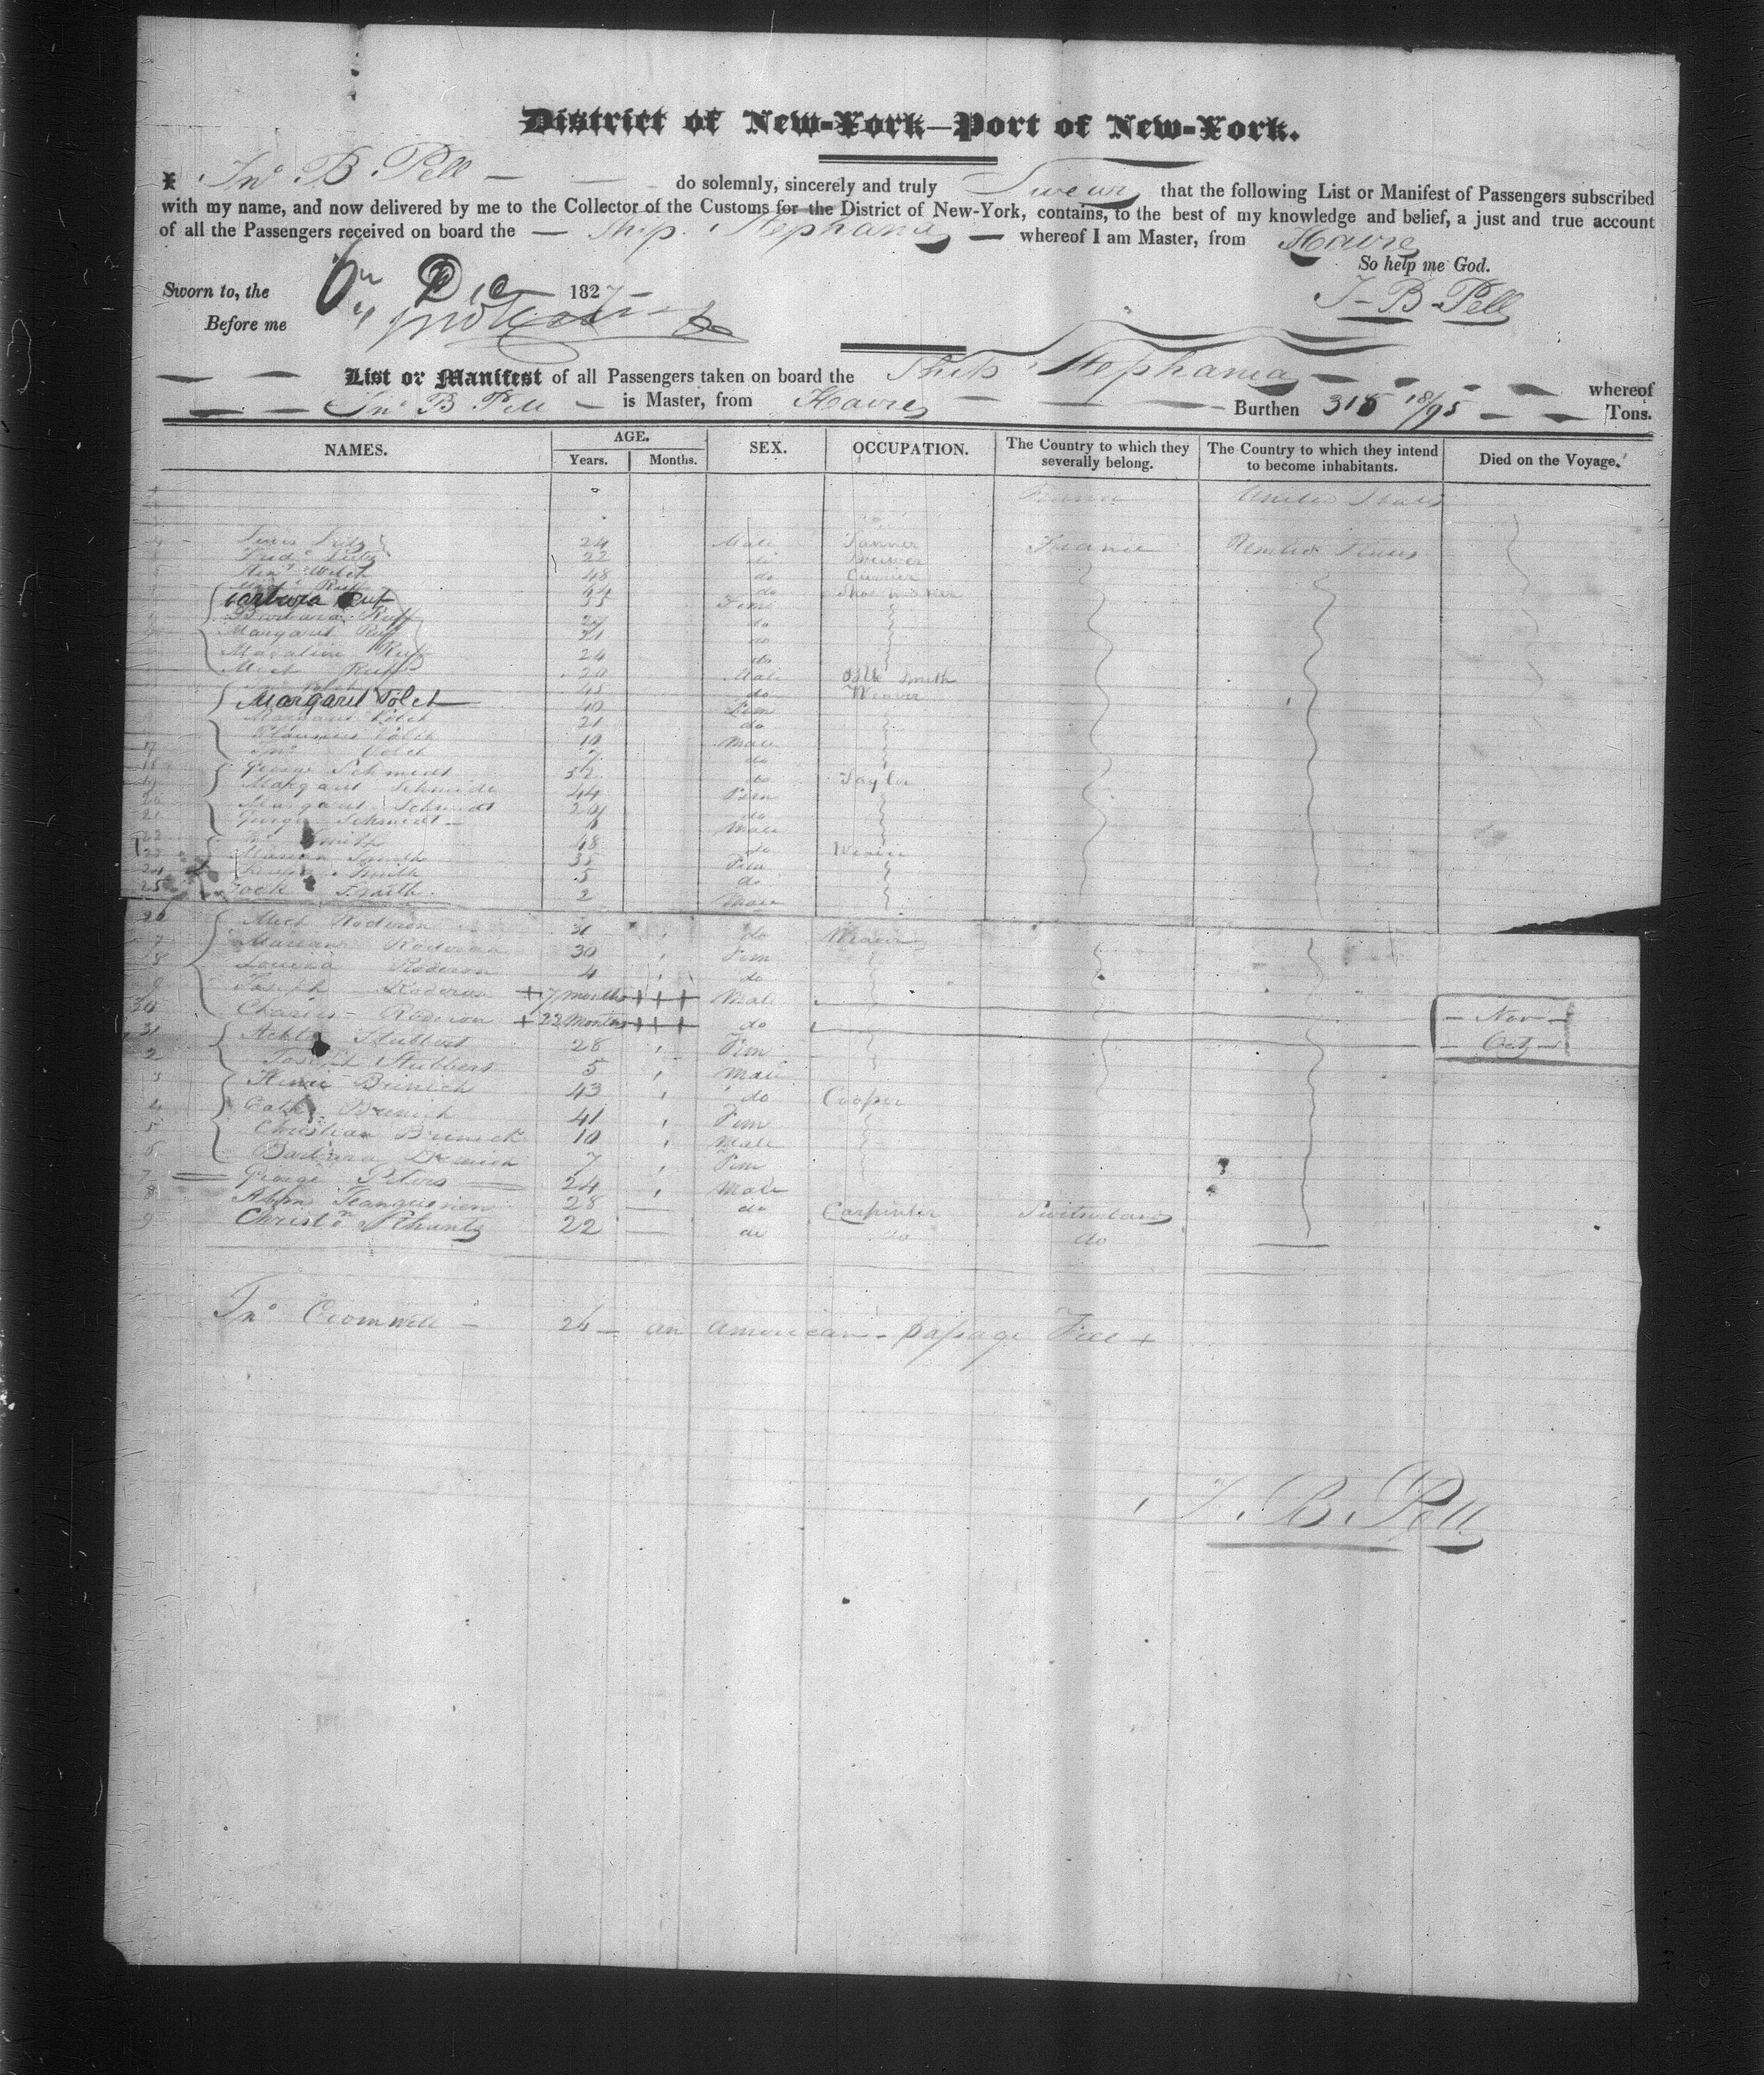 District of New-York—Port of New-York.
I Jno B Pell — do solemnly, sincerely and truly Swear that the following List or Manifest of Passengers subscribed
with my name, and now delivered by me to the Collector of the Customs for the District of New-York, contains, to the best of my knowledge and belief, a just and true account
of all the Passengers received on board the — Ship Stephania — whereof I am Master, from Havre
So help me God.
Sworn to, the 6th Dec 1827
J-B-Pell
Before me
List or Manifest of all Passengers taken on board the Ship Stephania whereof
Jno B Pell — is Master, from Havre Burthen 315 18/95 Tons.
NAMES. AGE. Years. Months. SEX. OCCUPATION. The Country to which they severally belong. The Country to which they intend to become inhabitants. Died on the Voyage.
France United States
24 Male Tanner France United States
22 do Brewer
Welch 48 do Currier
Ruff 44 do Shoe maker
Barbara Ruf 55 Fem
Barbara Ruff 27 do
Margaret Ruff 21 do
Magaline Ruff 24 do
Mich Ruff 20 Male Smith
45 do Weaver
Margaret Volch 40 Fem
Margaret Volch 21 do
Volch 10 Male
17 Jno Volch 7 do
18 George Schmidt 52 do Taylor
19 Margaret Schmidt 44 Fem
20 Margaret Schmidt 20 do
21 George Schmidt Male
22 Smith 48 do
23 Smith 35 Fem
24 Smith 5 do
25 Smith 2 Male
26 Mich Roderon 31 do Weaver
7 Mariane Roderon 30 Fem
8 Louisa Roderon 4 do
9 Joseph Roderon + 7 months + + + Male — Nov —
30 Charles Roderon + 22 Months + + + do — Oct —
31 Stubbert 28 Fem
2 Joseph Stubbert 5 Male
3 Henri Brinich 43 do Cooper
4 Cath Brinich 41 Fem
5 Christian Brinich 10 Male
6 Barbara Brinich 7 Fem
7 George Peters 24 Male
8 Abm 28 do Carpenter Switzerland
9 Christn Schantz 22 do do do
Jno Cromwell — 26 — an American — passage Free +
J. B. Pell